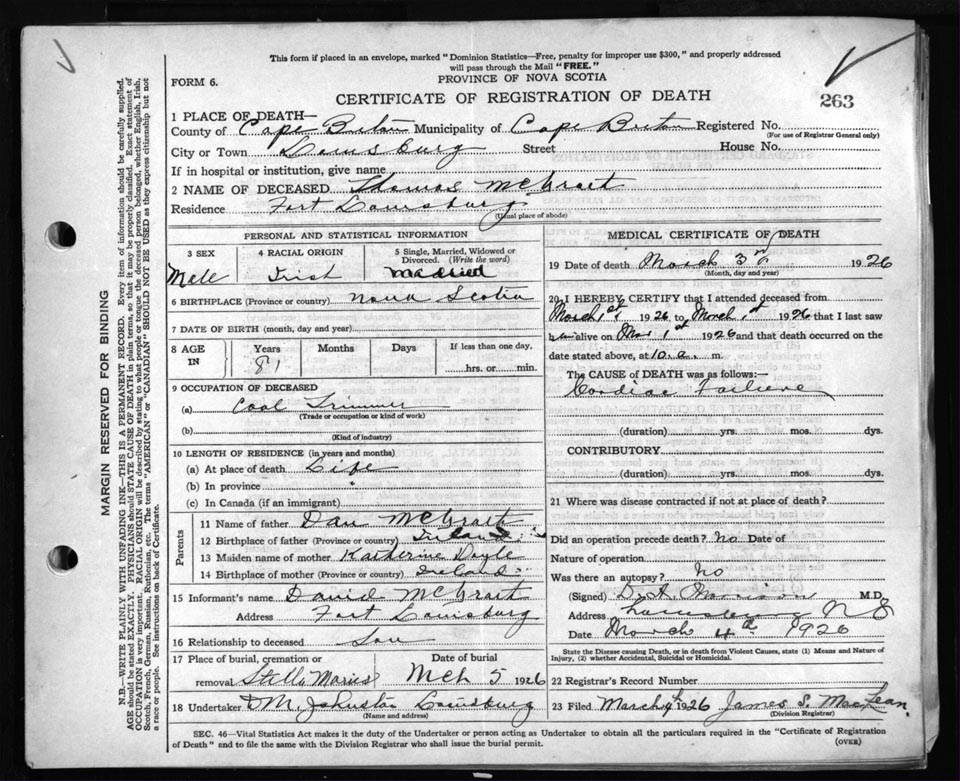 This form if placed in an envelope, marked "Dominion Statistics—Free, penalty for improper use $300," and properly addressed
will pass through the Mail "FREE."
FORM 6.
PROVINCE OF NOVA SCOTIA
CERTIFICATE OF REGISTRATION OF DEATH
263
1 PLACE OF DEATH—
County of Cape Breton Municipality of Cape Breton Registered No.
(For use of Registrar General only)
City or Town Louisburg Street House No.
If in hospital or institution, give name
2 NAME OF DECEASED Thomas McGrath
Residence Fort Louisburg
(Usual place of abode)
PERSONAL AND STATISTICAL INFORMATION
3 SEX
Male
4 RACIAL ORIGIN
Irish
5 Single, Married, Widowed or Divorced. (Write the word)
Married
6 BIRTHPLACE (Province or country) Nova Scotia
7 DATE OF BIRTH (month, day and year)
8 AGE IN
Years Months Days If less than one day,
81 hrs. or min.
9 OCCUPATION OF DECEASED
(a) Coal Trimmer
(Trade or occupation or kind of work)
(b)
(Kind of industry)
10 LENGTH OF RESIDENCE (in years and months)
(a) At place of death Life
(b) In province "
(c) In Canada (if an immigrant)
Parents
11 Name of father Dan McGrath
12 Birthplace of father (Province or country) Ireland
13 Maiden name of mother Katherine Doyle
14 Birthplace of mother (Province or country) Ireland
15 Informant's name David McGrath
Address Fort Louisburg
16 Relationship to deceased Son
17 Place of burial, cremation or removal Stella Maries
Date of burial
Mch 5 1926
18 Undertaker D M Johnston Louisburg
(Name and address)
MEDICAL CERTIFICATE OF DEATH
19 Date of death March 3rd 1926
(Month, day and year)
20 I HEREBY CERTIFY that I attended deceased from
March 1st 1926 to March 1st 1926 that I last saw
him alive on Mar 1st 1926 and that death occurred on the
date stated above, at 10. a. m.
The CAUSE OF DEATH was as follows:—
Cardiac Failure
(duration) yrs. mos. dys.
CONTRIBUTORY
(duration) yrs. mos. dys.
21 Where was disease contracted if not at place of death?
Did an operation precede death? no Date of
Nature of operation
Was there an autopsy? no
(Signed) D. A. Morrison M.D.
Address Louisburg N S
Date March 4th 1926
State the Disease causing Death, or in death from Violent Causes, state (1) Means and Nature of
Injury, (2) whether Accidental, Suicidal or Homicidal.
22 Registrar's Record Number
23 Filed March 4 1926 James S. MacLean.
(Division Registrar)
SEC. 46—Vital Statistics Act makes it the duty of the Undertaker or person acting as Undertaker to obtain all the particulars required in the "Certificate of Registration
of Death" and to file the same with the Division Registrar who shall issue the burial permit.
(OVER)
MARGIN RESERVED FOR BINDING
N.B.—WRITE PLAINLY WITH UNFADING INK—THIS IS A PERMANENT RECORD. Every item of information should be carefully supplied.
AGE should be stated EXACTLY. PHYSICIANS should STATE CAUSE OF DEATH in plain terms, so that it may be properly classified. Exact statement of
OCCUPATION is very important. RACIAL ORIGIN will be described by stating to what people or tongue the deceased person belonged, whether English, Irish,
Scotch, French, German, Russian, Ruthenian, etc. The terms "AMERICAN" or "CANADIAN" SHOULD NOT BE USED as they express citizenship but not
a race or people. See instructions on back of Certificate.